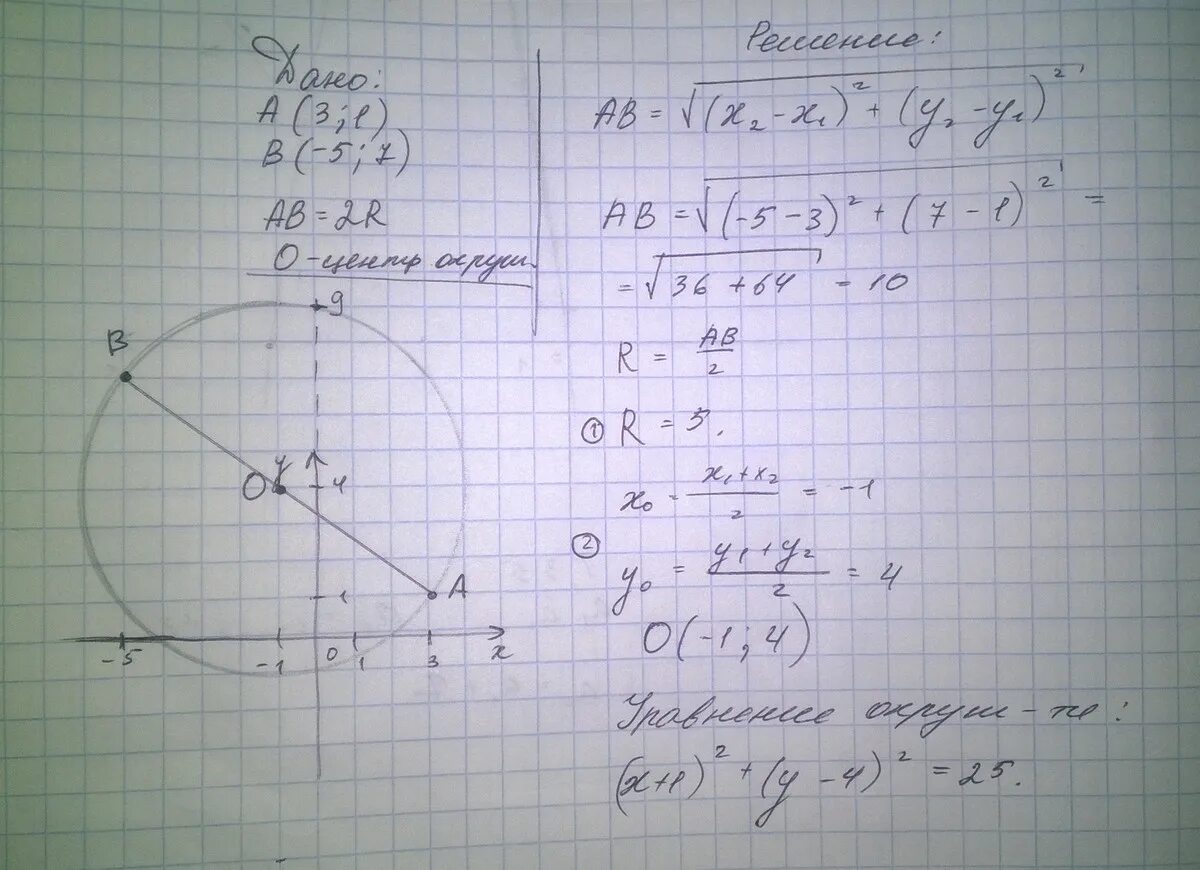 Дано:
A (3; 1)
B (-5; 7)
AB = 2R
O-центр окруж.
Решение:
AB = √(x₂ - x₁)² + (y₂ - y₁)²
AB = √(-5 - 3)² + (7 - 1)² =
= √36 + 64 = 10
R = AB/2
① R = 5.
x₀ = x₁ + x₂/2 = -1
② y₀ = y₁ + y₂/2 = 4
O (-1; 4)
Уравнение окруж-ти:
(x+1)² + (y - 4)² = 25.
9
B
y
O
4
1
A
-5
-1
0
1
3
x